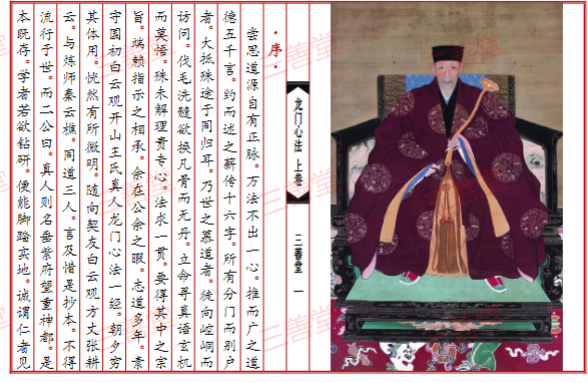 ·序·
尝思道源自有正脉。万法不出一心。推而广之道
德五千言。约而述之薪传十六字。所有分门而别户
者。大抵殊途于同归耳。乃世之慕道者。徒向崆峒而
访问。伐毛洗髓欲换凡骨而无丹。立命寻真语玄机
而莫悟。殊未解理贵专心。法求一贯。要得其中之宗
旨。端赖指示之相承。余在公余之暇。志道多年。素
守国初白云观开山王氏真人龙门心法一经。朝夕穷
其体用。恍然有所微明。随向契友白云观方丈张耕
云。与炼师秦云樵。同道三人。言及惜是抄本。不得
流行于世。而二公曰。真人则名垂紫府望重神都。是
本既存。学者若欲钻研。便能脚踏实地。诚谓仁者见
龙门心法 上卷
三善堂 一
三善堂